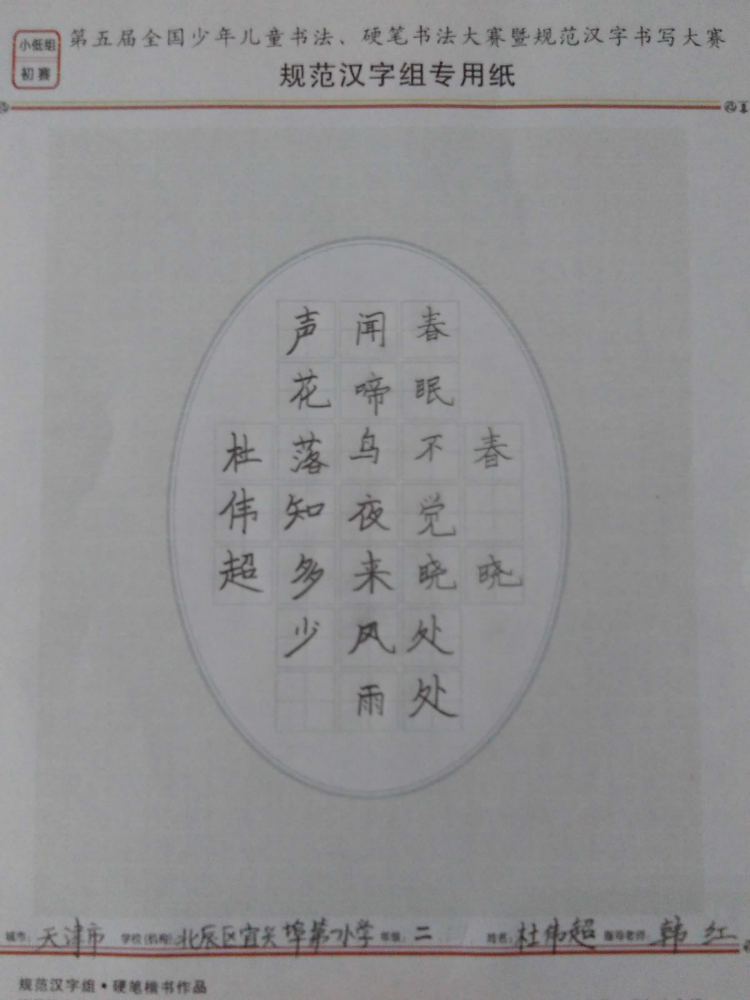 小低组
初赛
第五届全国少年儿童书法、硬笔书法大赛暨规范汉字书写大赛
规范汉字组专用纸
春晓
春眠不觉晓处处
闻啼鸟夜来风雨
声花落知多少
杜伟超
城市：天津市 学校(机构)：北辰区宜兴埠第一小学 年级：二 姓名：杜伟超 指导老师：韩红
规范汉字组·硬笔楷书作品